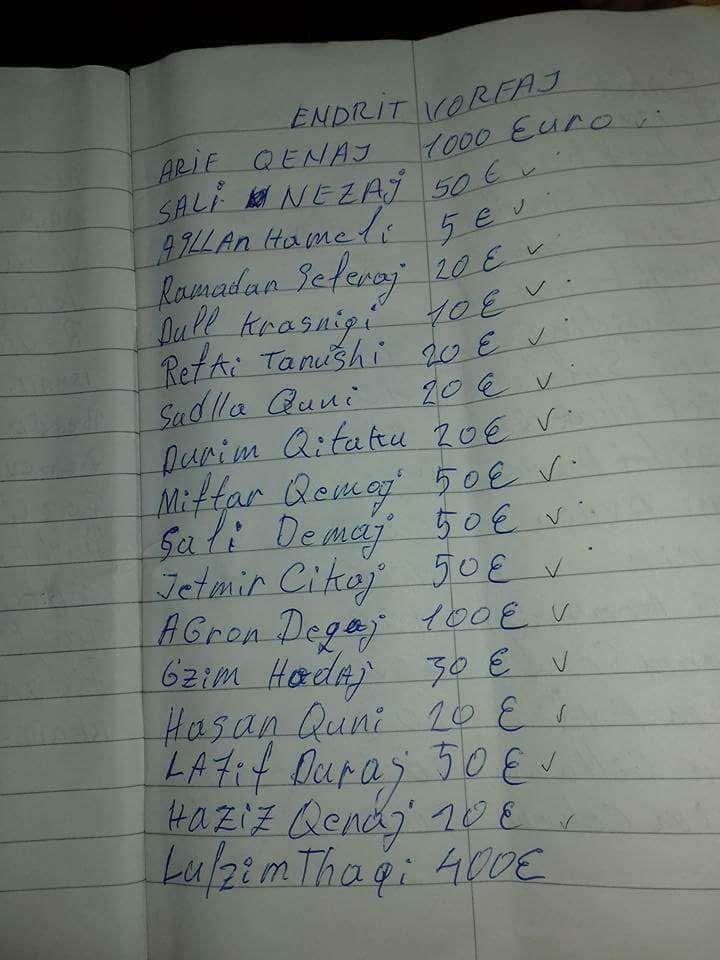 ENDRIT VORFAJ
ARIF QENAJ 1000 Euro ✓
SALI NEZAJ 50 € ✓
AgllAn Hameli 5 € ✓
Ramadan Seferaj 20 € ✓
Dull Krasniqi 10 € ✓
Refki Tanushi 20 € ✓
Sadlla Quni 20 € ✓
Durim Qitaku 20 € ✓
Miftar Qemaj 50 € ✓
Sali Demaj 50 € ✓
Jetmir Cikaj 50 € ✓
AGron Degaj 100 € ✓
Gzim HodAj 30 € ✓
Hasan Quni 20 € ✓
LATif Duraj 50 € ✓
HaziZ Qenaj 20 € ✓
Lulzim Thaqi 400 €